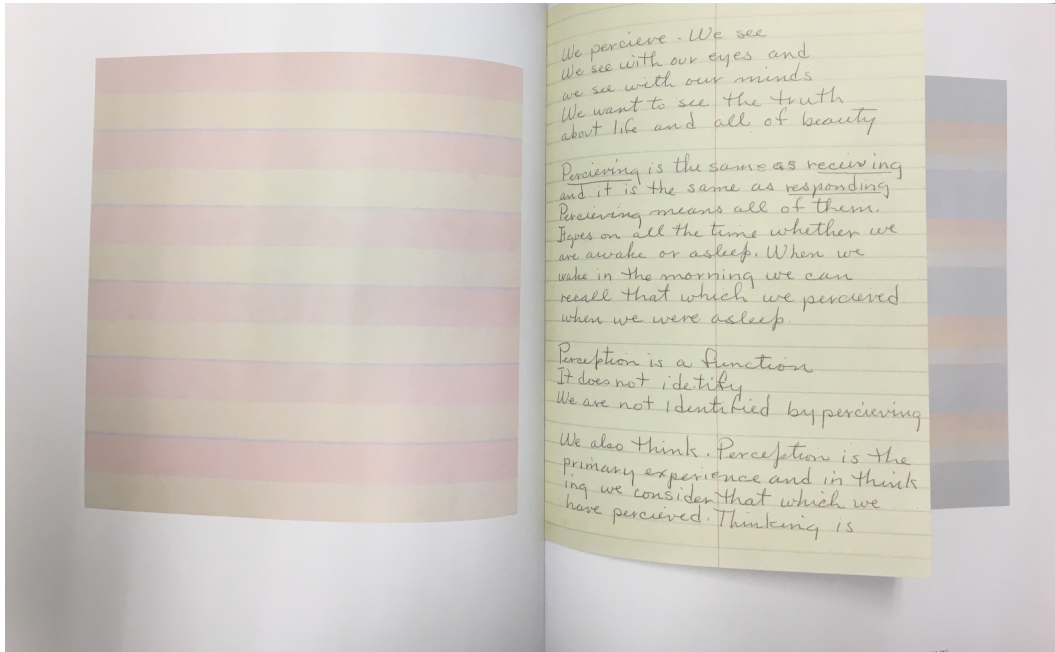 We percieve - We see
We see with our eyes and
we see with our minds
We want to see the truth
about life and all of beauty
Percieving is the same as receiving
and it is the same as responding
Percieving means all of them.
It goes on all the time whether we
are awake or asleep. When we
wake in the morning we can
recall that which we percieved
when we were asleep.
Perception is a function
It does not idetify
We are not identified by percieving
We also think. Perception is the
primary experience and in think
ing we consider that which we
have percieved. Thinking is